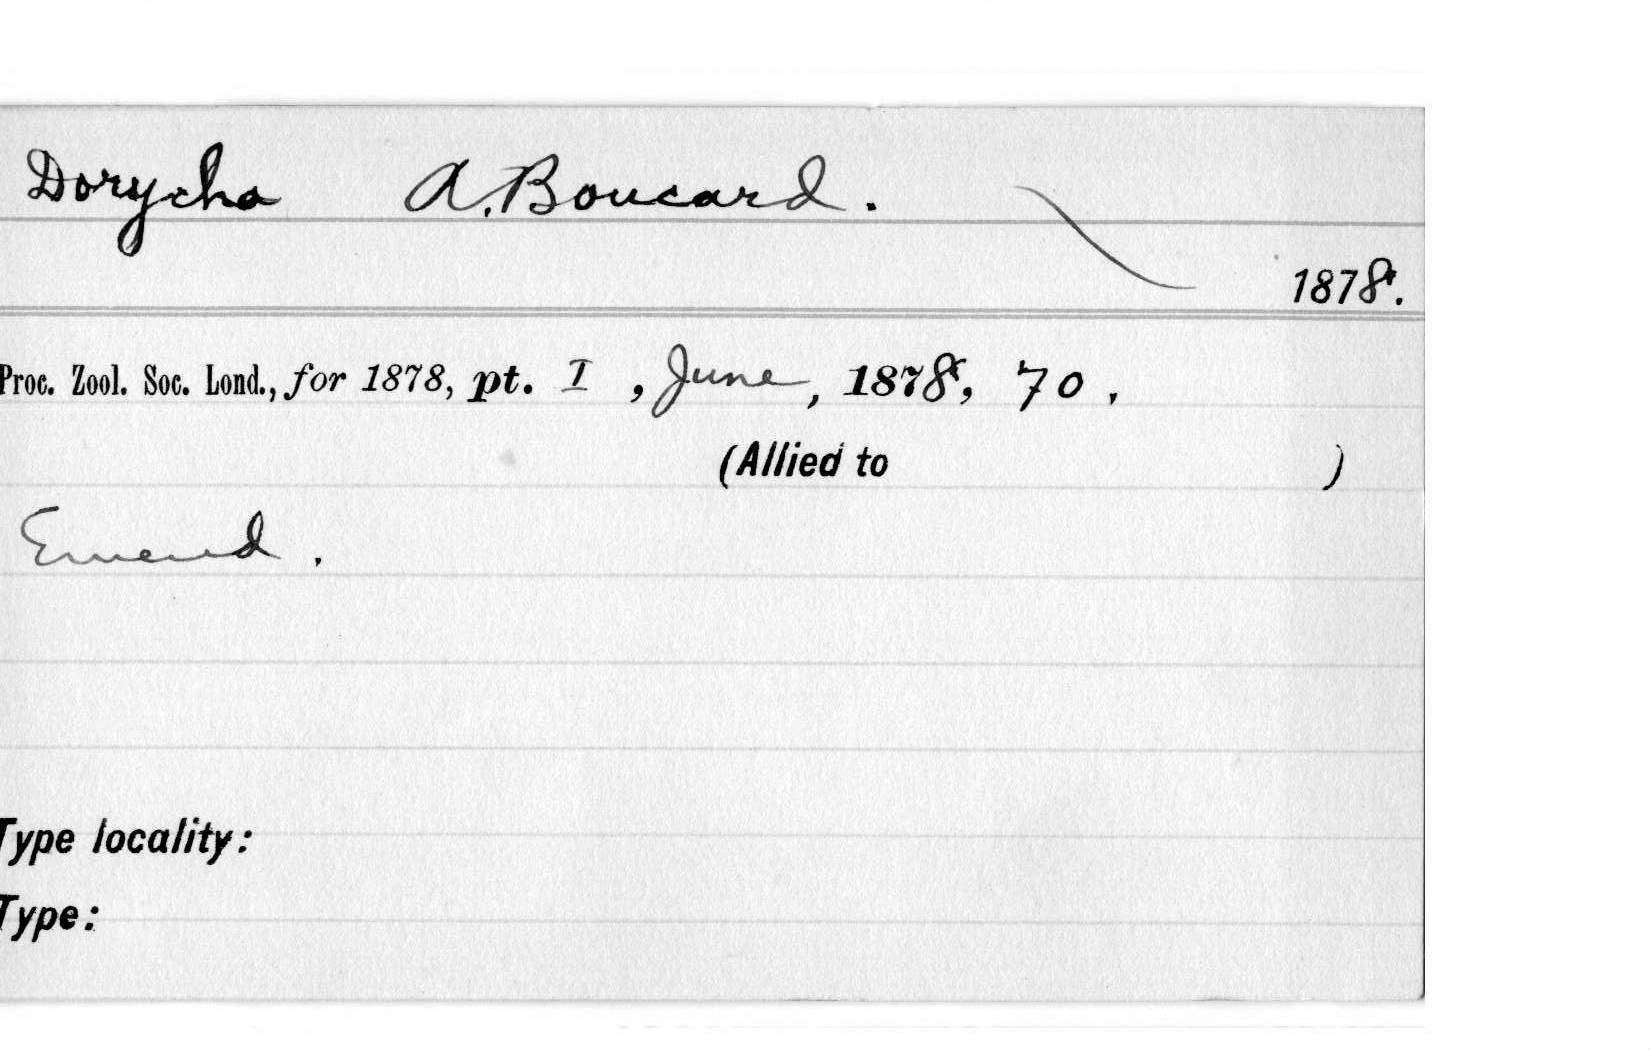 Dorycha A. Boucard.
1878.
Proc. Zool. Soc. Lond., for 1878, pt. I, June, 1878, 70.
(Allied to )
Emend.
Type locality:
Type: